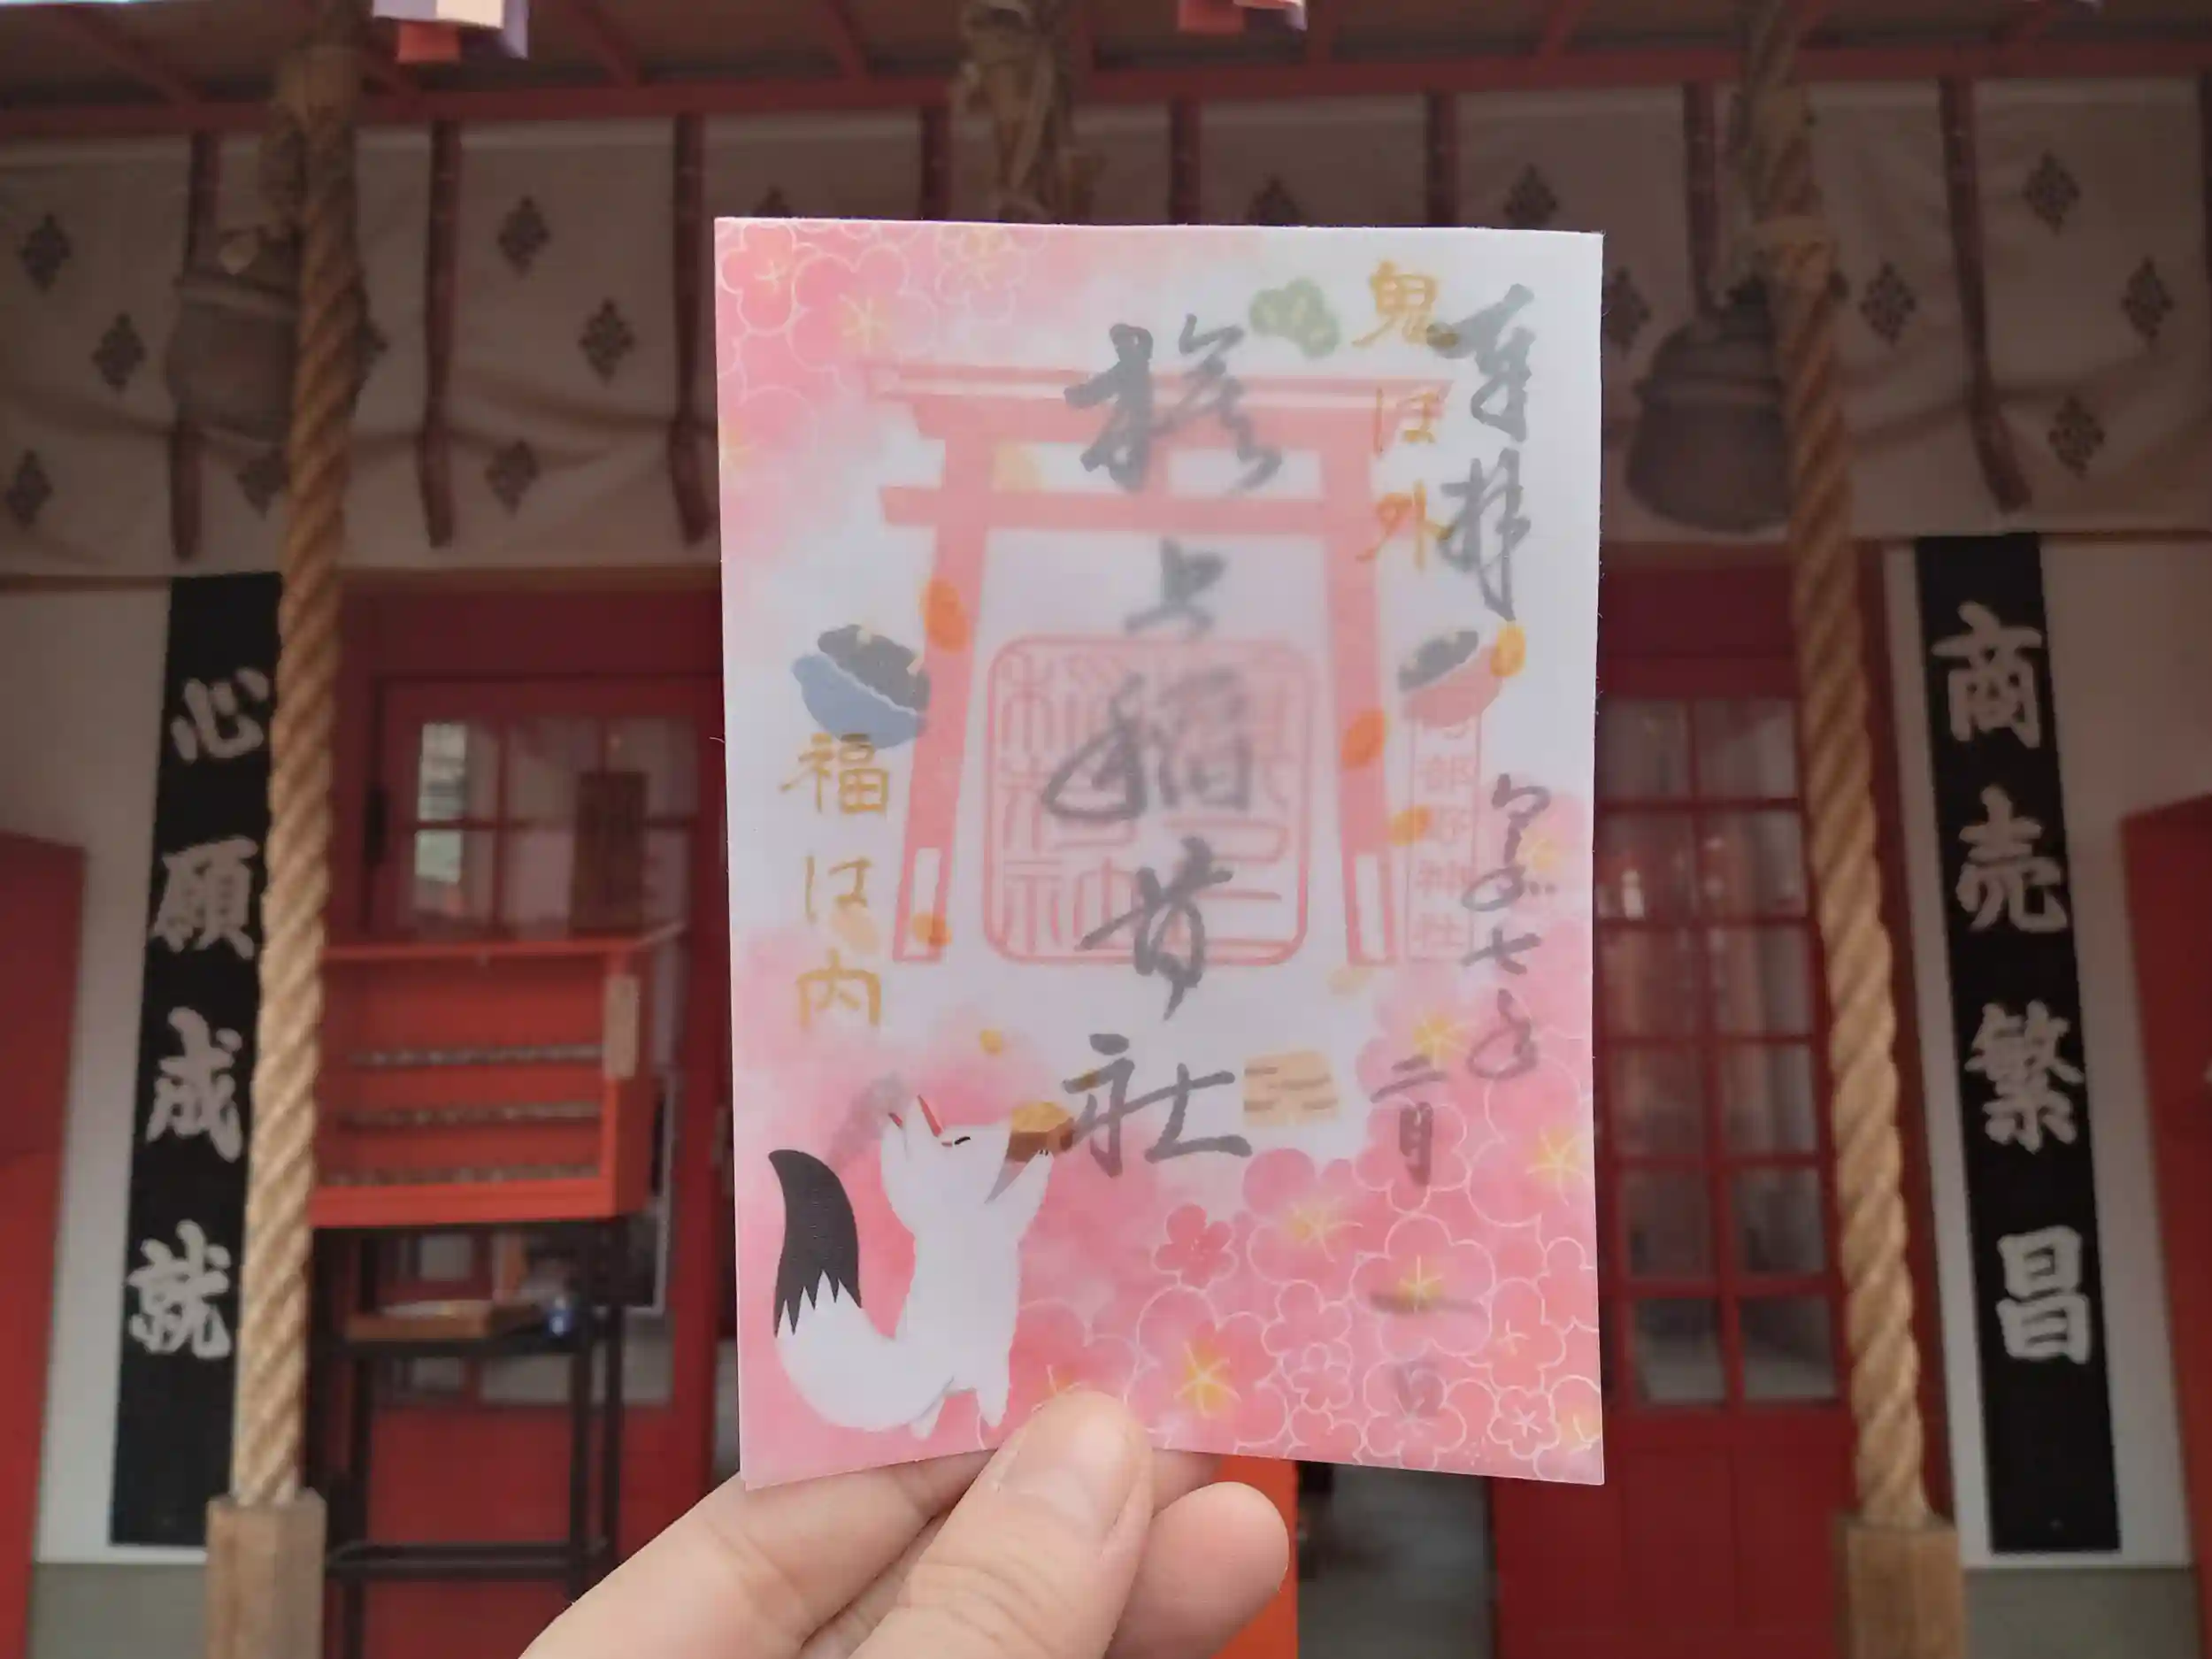 奉拝
鬼は外
福は内
令和七年
二月一日
上稲荷社
商売繁昌
心願成就